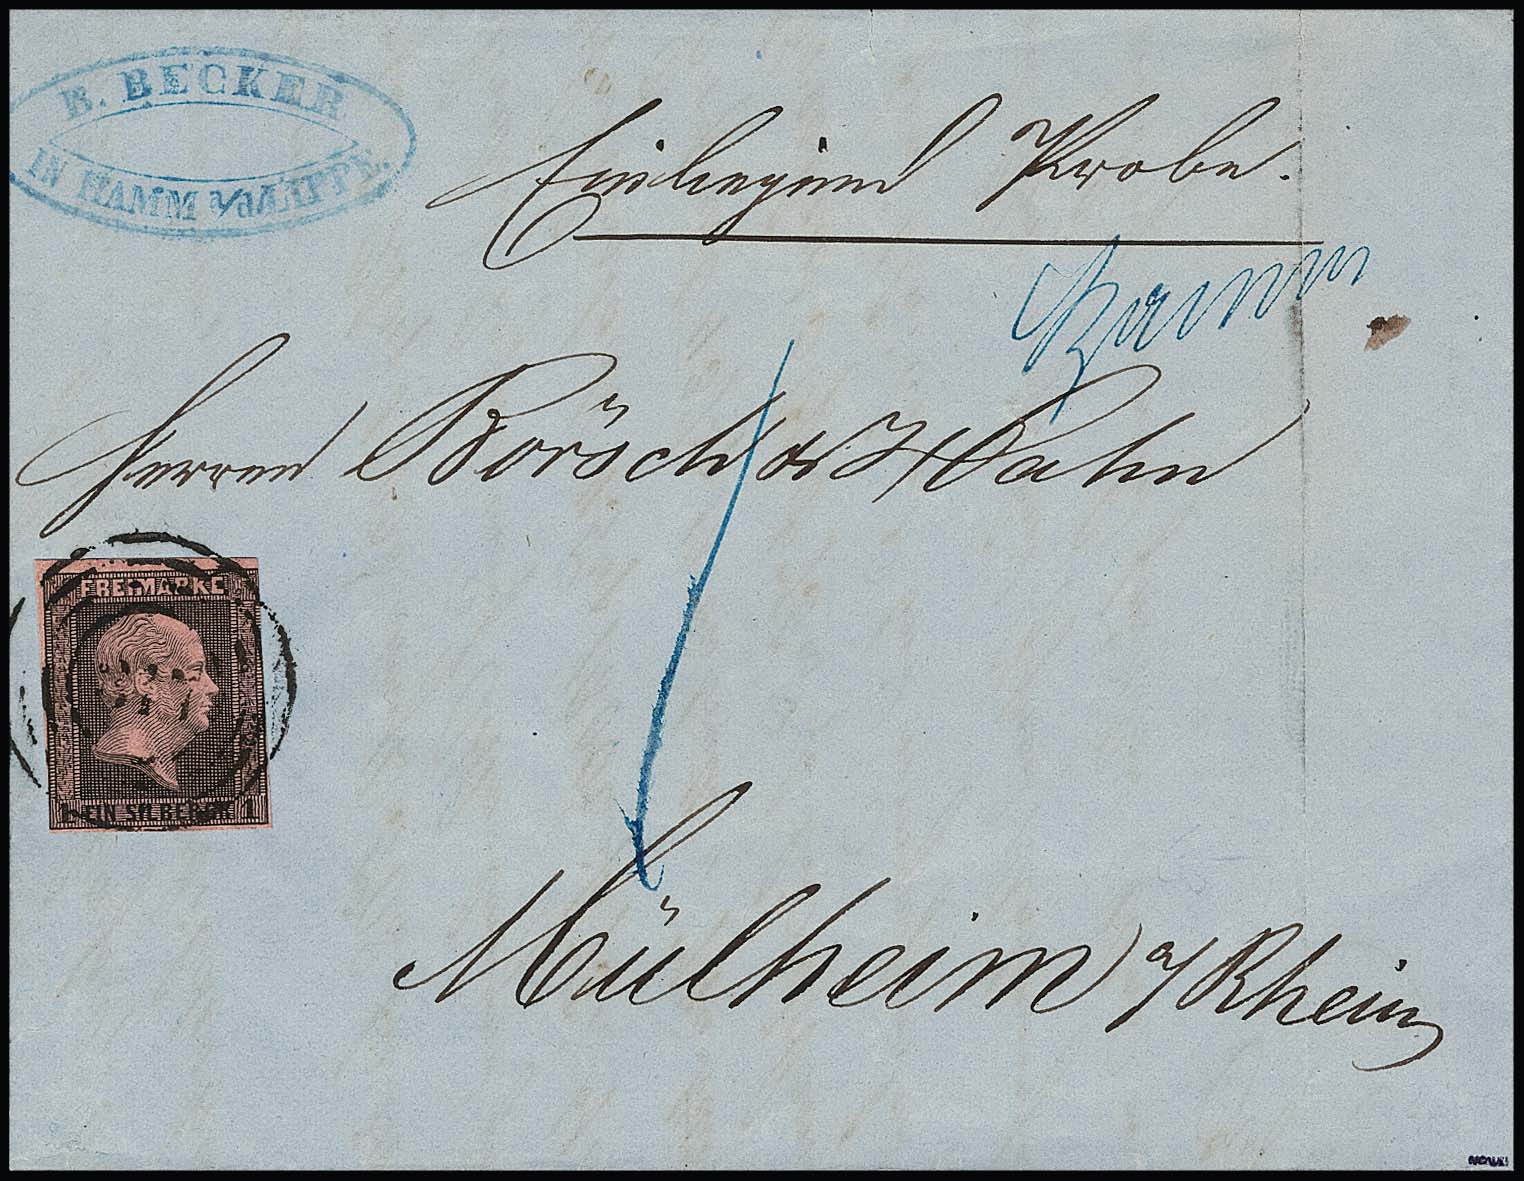 B. BECKER
IN HAMM a/d LIPPE.
Einliegend Probe.
Herren Börsch & Hahn
FREIMARKE
1 EIN SILBERGR. 1
Mülheim a/Rhein